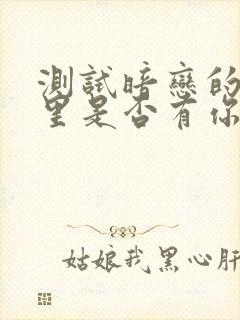 測試暗戀的
里是否有你
姑娘我黑心肝